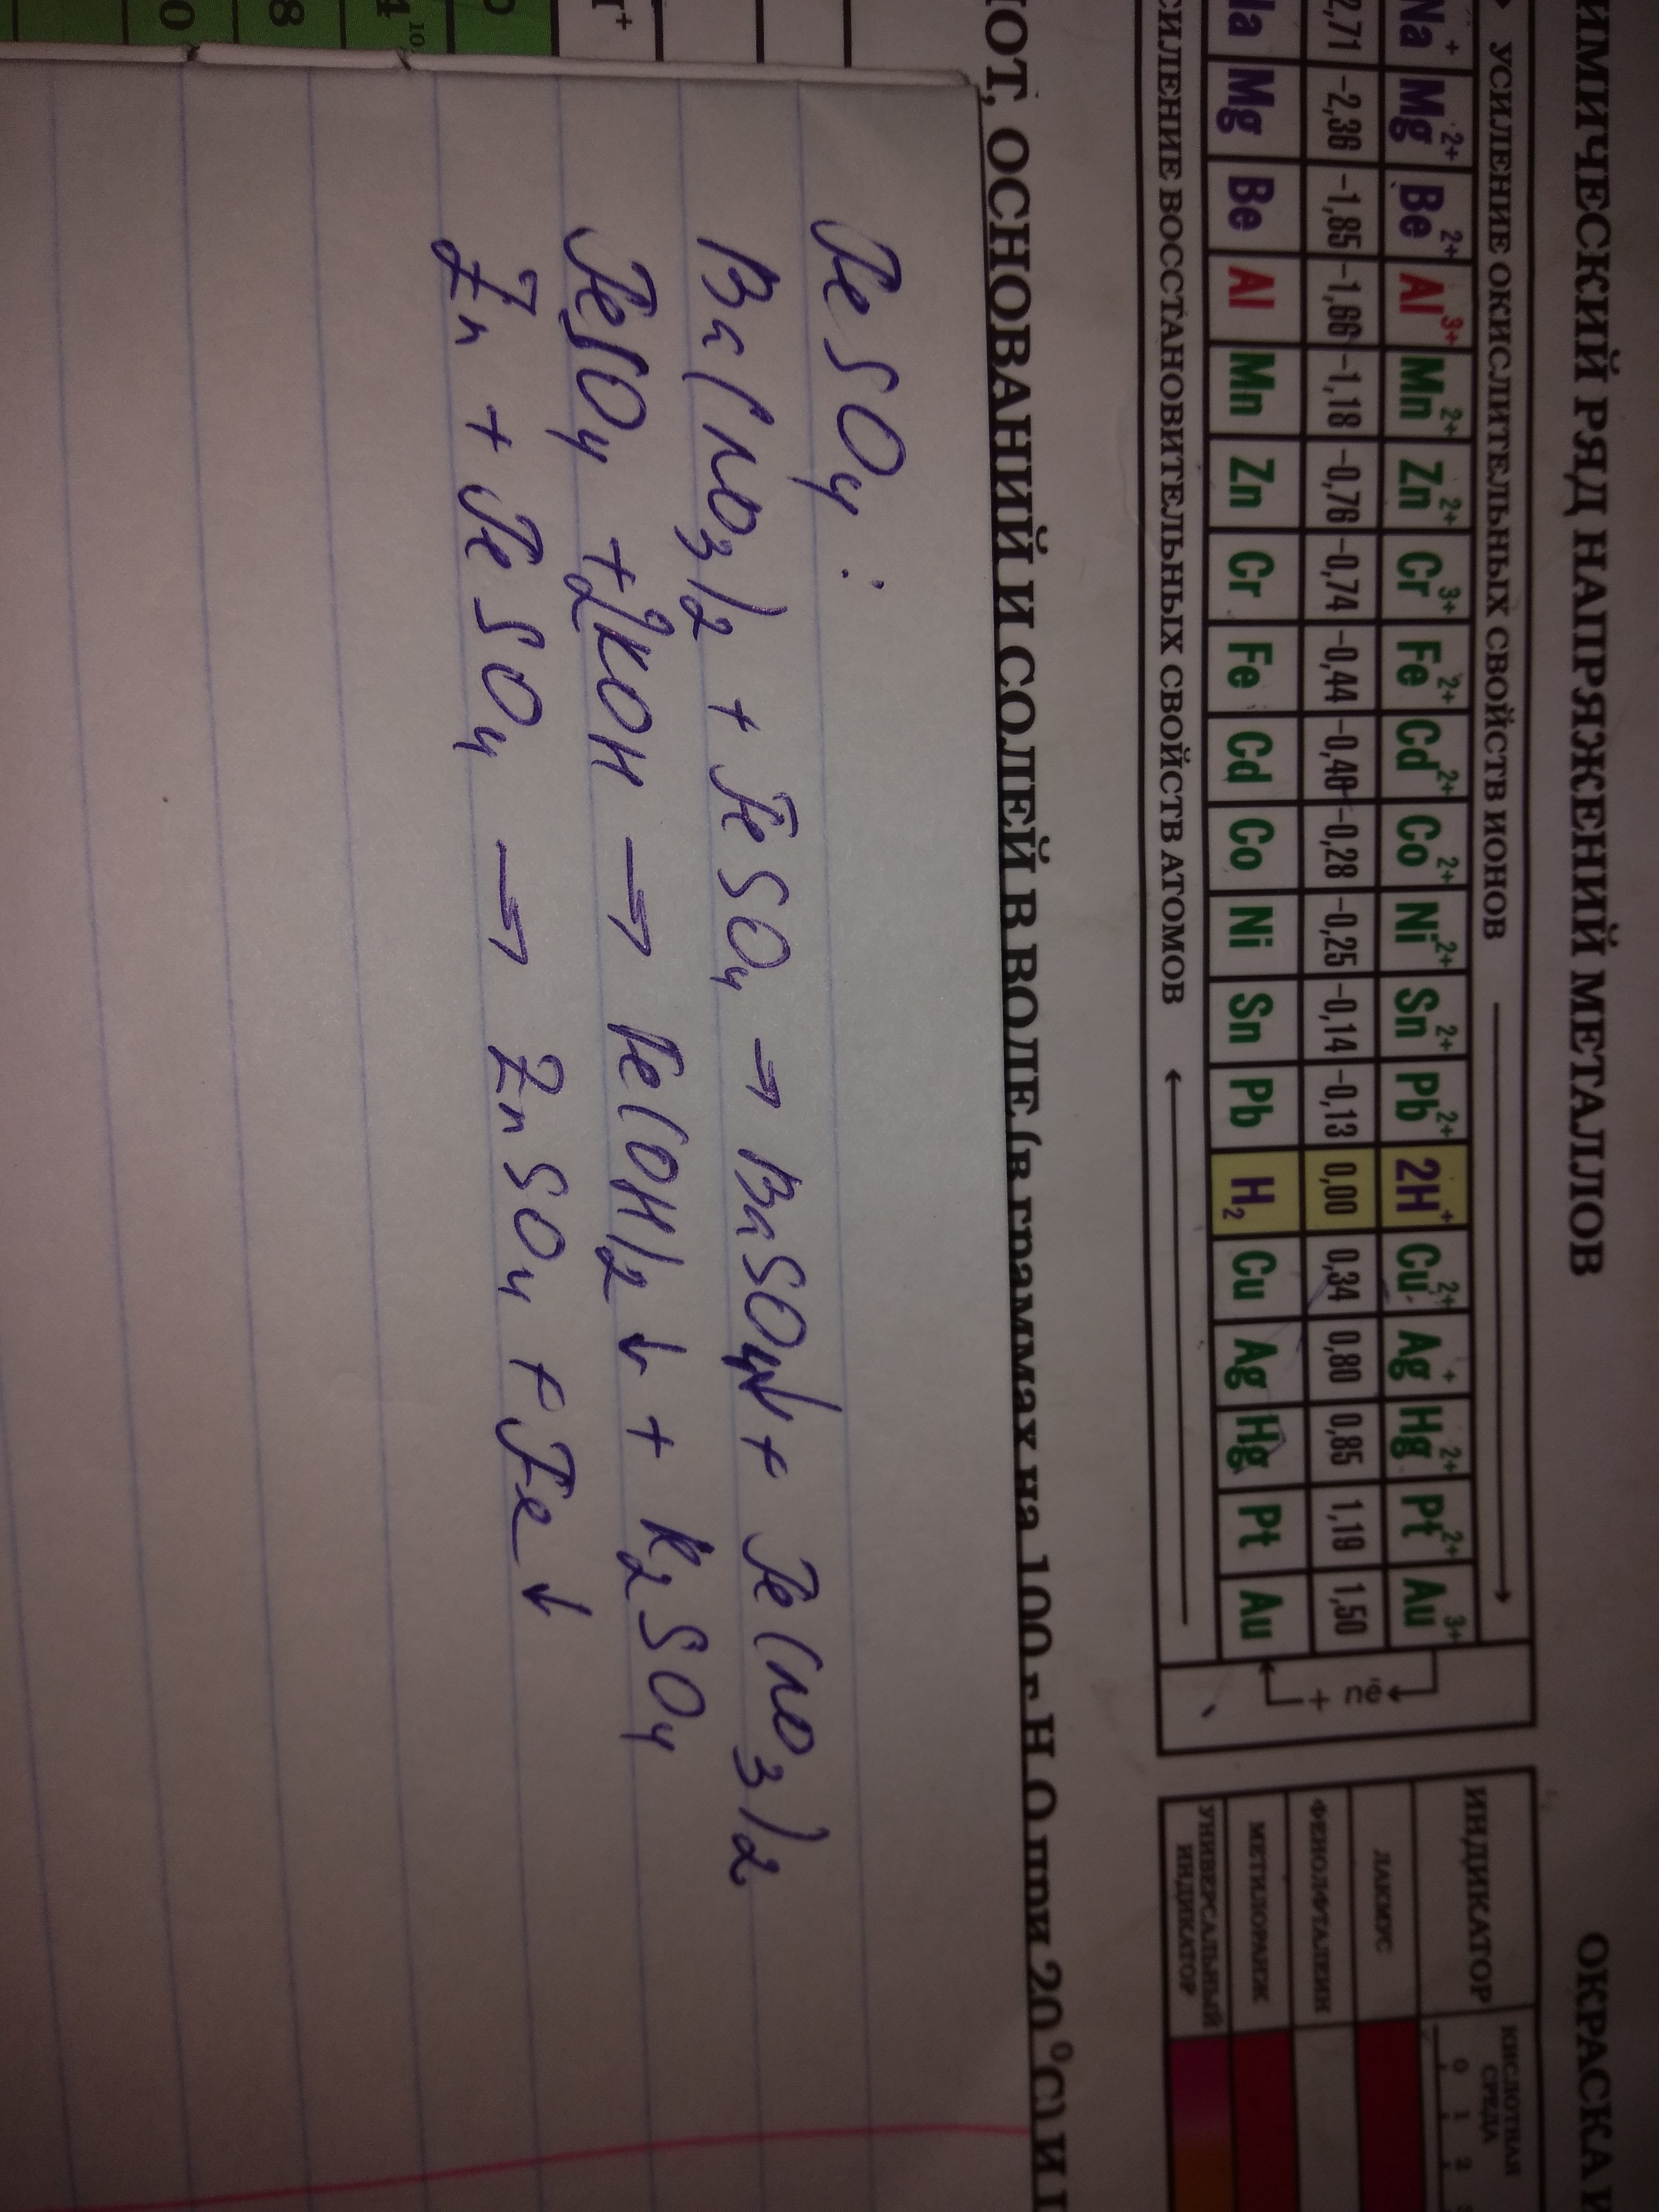 ИМИЧЕСКИЙ РЯД НАПРЯЖЕНИЙ МЕТАЛЛОВ
ОКРАСКА И
УСИЛЕНИЕ ОКИСЛИТЕЛЬНЫХ СВОЙСТВ ИОНОВ
Na⁺ Mg²⁺ Be²⁺ Al³⁺ Mn²⁺ Zn²⁺ Cr³⁺ Fe²⁺ Cd²⁺ Co²⁺ Ni²⁺ Sn²⁺ Pb²⁺ 2H⁺ Cu²⁺ Ag⁺ Hg²⁺ Pt²⁺ Au³⁺
2,71 –2,36 –1,85 –1,66 –1,18 –0,76 –0,74 –0,44 –0,40 –0,28 –0,25 –0,14 –0,13 0,00 0,34 0,80 0,85 1,19 1,50
Na Mg Be Al Mn Zn Cr Fe Cd Co Ni Sn Pb H₂ Cu Ag Hg Pt Au
+ nē
СИЛЕНИЕ ВОССТАНОВИТЕЛЬНЫХ СВОЙСТВ АТОМОВ
ИНДИКАТОР
КИСЛОТНАЯ СРЕДА
0 1 2
ЛАКМУС
ФЕНОЛФТАЛЕИН
МЕТИЛОРАНЖ
УНИВЕРСАЛЬНЫЙ ИНДИКАТОР
ЛОТ, ОСНОВАНИЙ И СОЛЕЙ В ВОДЕ (в граммах на 100 г H₂O при 20 °C) И
FeSO₄:
Ba(NO₃)₂ + FeSO₄ → BaSO₄↓ + Fe(NO₃)₂
FeSO₄ + 2KOH → Fe(OH)₂↓ + K₂SO₄
Zn + FeSO₄ → ZnSO₄ + Fe↓